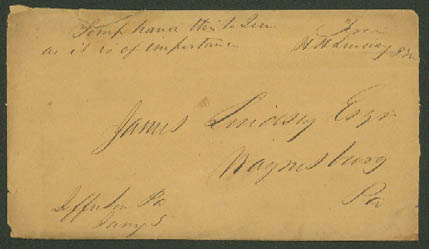 hand this to Jim
as it is of importance
From
H H Lindsey
James Lindsey Esqr
Waynesburg
Pa
Jefferson Pa
Jany 5